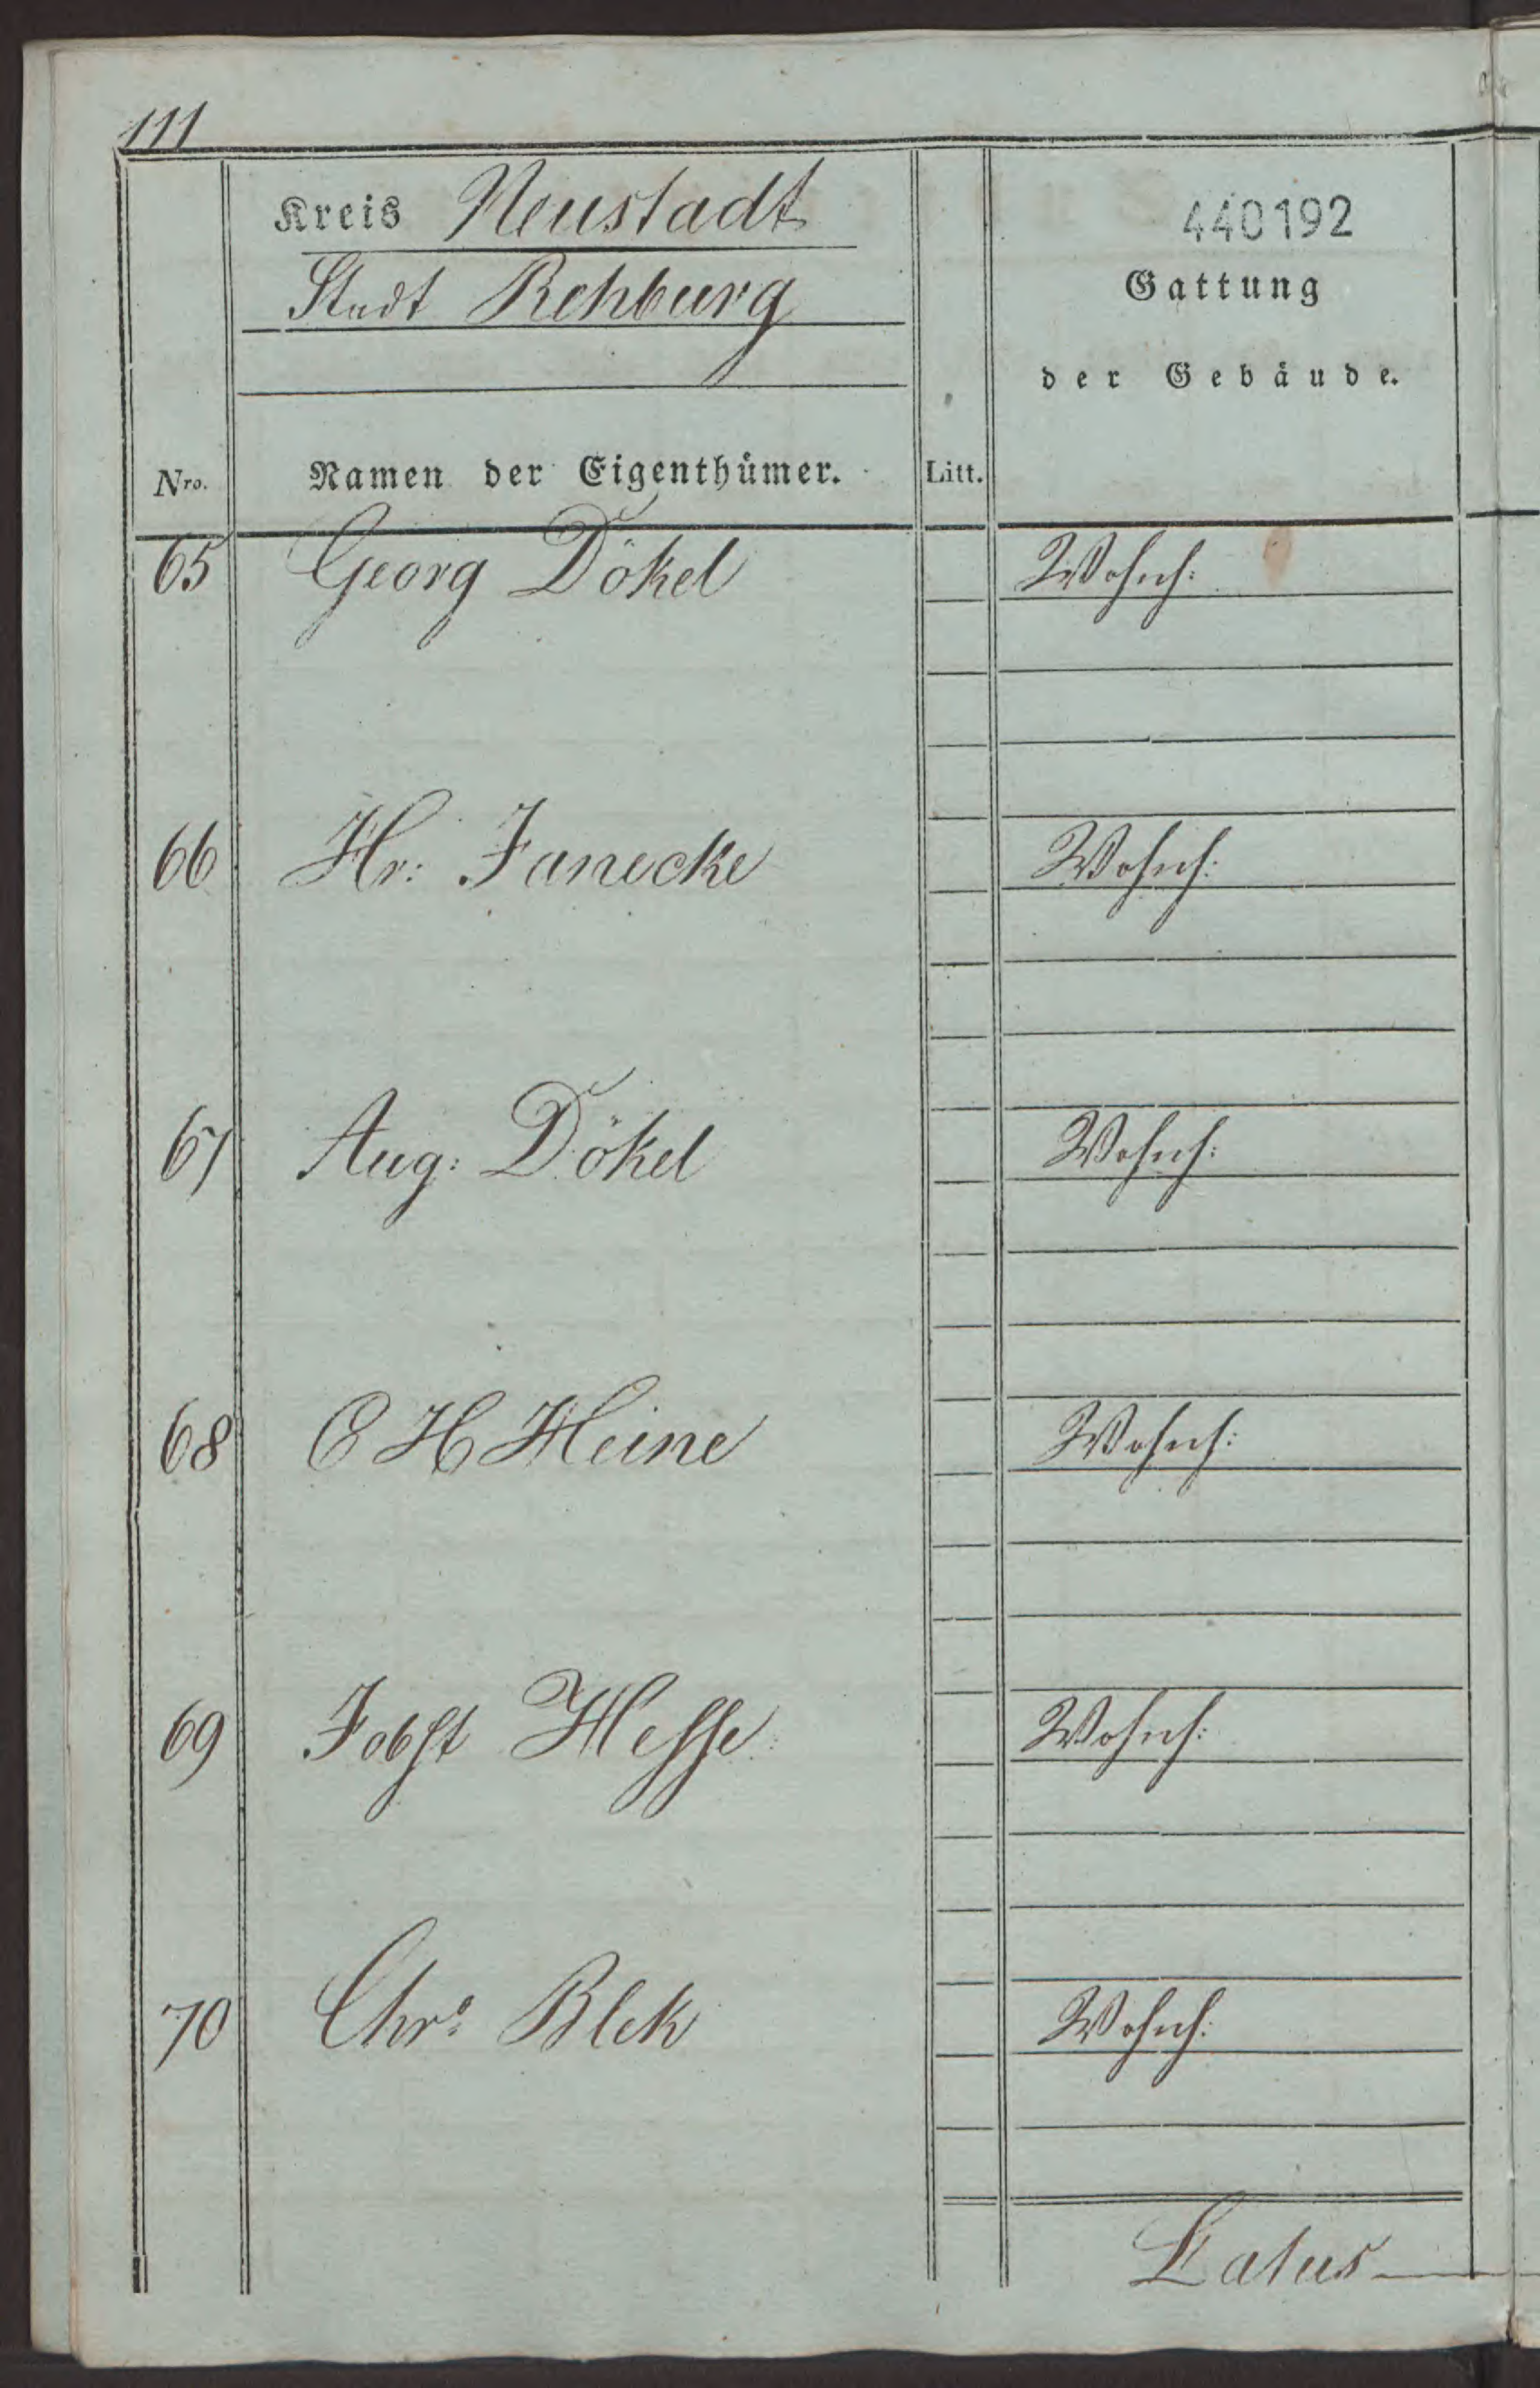 111
Kreis Neustadt
Stadt Rehburg
440192
Gattung
der Gebäude.
Nro.
Namen der Eigenthümer.
Litt.
65 Georg Dökel Wohnh:
66 Hr: Janecke Wohnh:
67 Aug: Dökel Wohnh:
68 C H Heine Wohnh:
69 Jobst Hesse Wohnh:
70 Chr: Blek Wohnh:
Latus